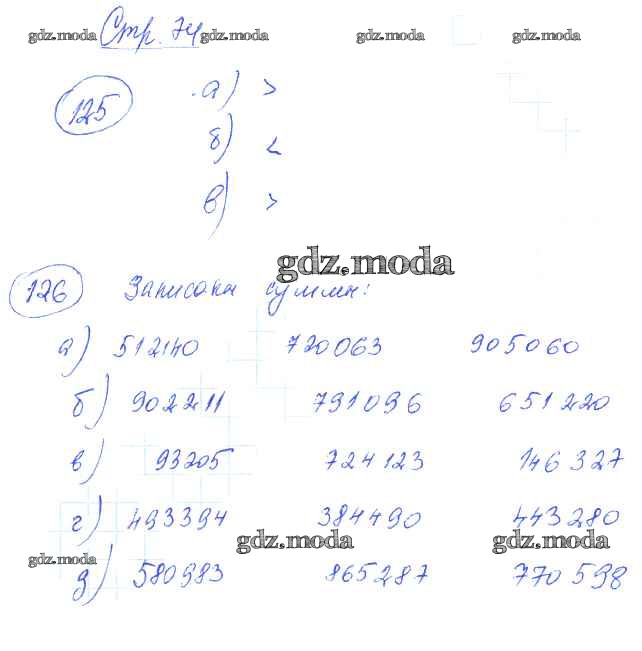 Стр. 74
gdz.moda gdz.moda gdz.moda gdz.moda
125 а) >
б) <
в) >
gdz.moda
126 Записаны суммы:
а) 512140 720063 905060
б) 902211 791096 651220
в) 93205 724123 146327
г) 493394 384490 443280
gdz.moda gdz.moda
gdz.moda
д) 580983 865287 770598